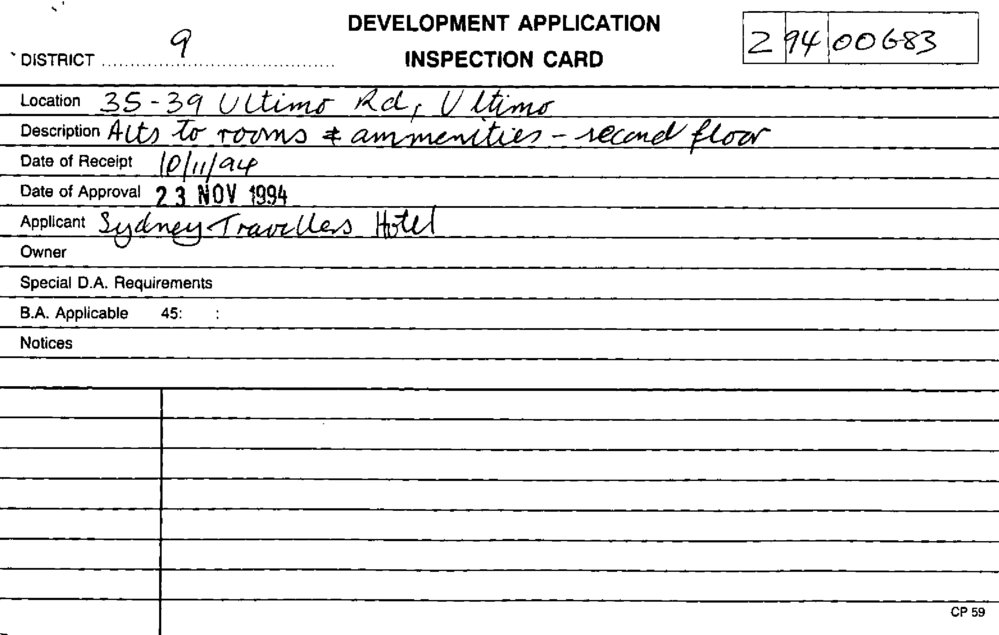 DEVELOPMENT APPLICATION
INSPECTION CARD
DISTRICT 9
Z 94 00683
Location 35-39 Ultimo Rd, Ultimo
Description Alts to rooms & ammenities - second floor
Date of Receipt 10/11/94
Date of Approval 23 NOV 1994
Applicant Sydney Travellers Hotel
Owner
Special D.A. Requirements
B.A. Applicable 45: :
Notices
CP 59